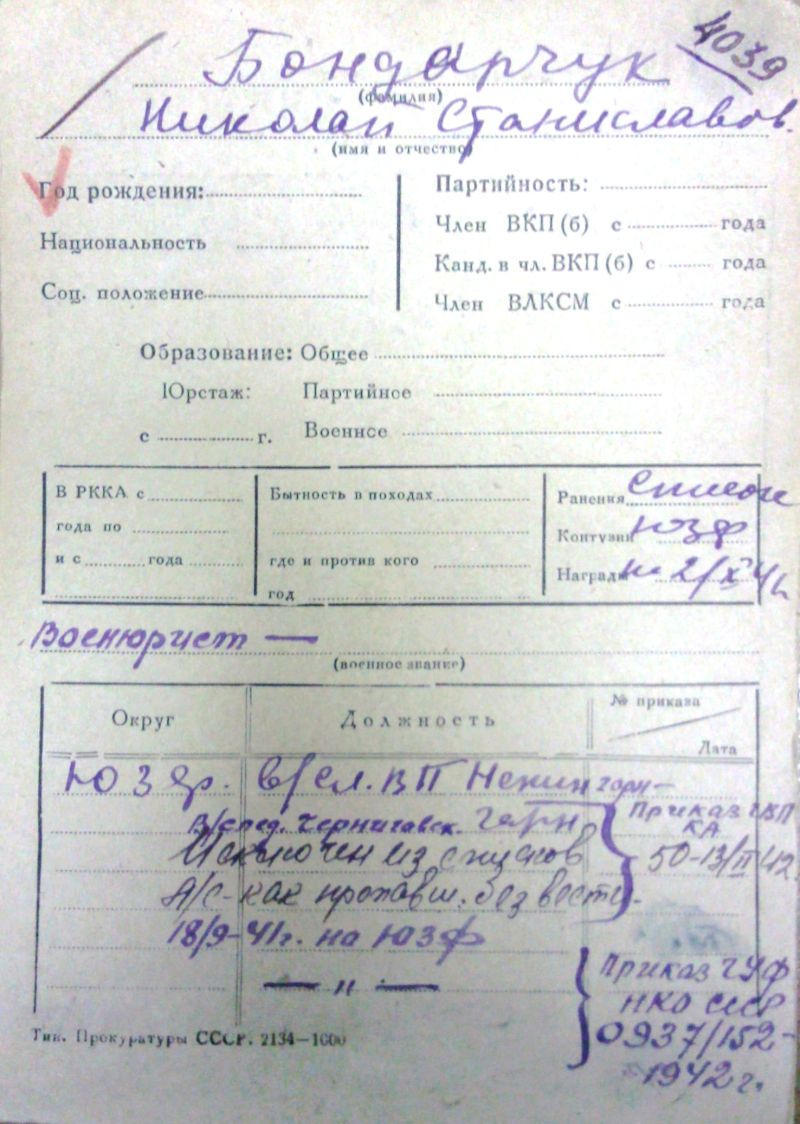 4039
Бондарчук
(фамилия)
Николай Станиславов.
(имя и отчество)
Год рождения:
Национальность
Соц. положение
Партийность:
Член ВКП (б) с года
Канд. в чл. ВКП (б) с года
Член ВЛКСМ с года
Образование: Общее
Юрстаж: Партийное
с г. Военное
В РККА с
года по
и с года
Бытность в походах
где и против кого
год
Ранения список
Контузии ЮЗФ
Награды на 2/X 41
Военюрист —
(военное звание)
Округ
Должность
№ приказа
Дата
ЮЗФр. в/сл. ВП Нежин гарн—
в/след. Черниговск. гарн
Исключен из списков
л/с - как пропавш. без вести.
18/9-41г. на ЮЗФ
Приказ ГВП
КА
50-13/II 42
— " —
Приказ ГУФ
НКО СССР
0937/152-
-1942г.
Тип. Прокуратуры СССР. 2134—1000